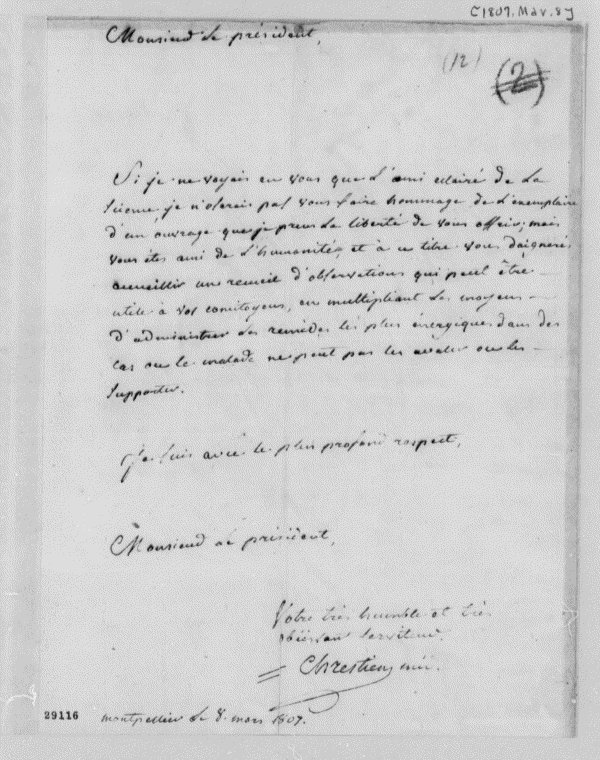 [1807. Mar. 8]
Monsieur le président,
(12)
(2)
Si je ne voyais en vous que l'ami eclairé de la
science, je n'oserais pas vous faire hommage de l'exemplaire
d'un ouvrage que je prens la liberté de vous offrir; mais
vous êtes ami de l'humanité, et à ce titre vous daignerés
accueillir un recueil d'observations qui peut être
utile à vos concitoyens, en multipliant les moyens
d'administrer les remèdes les plus énergiques dans des
cas ou le malade ne peut pas les avaler ou les
supporter.
Je suis avec le plus profond respect,
Monsieur le président,
Votre très humble et très
obéissant serviteur.
Chrestien
29116
montpellier le 8. mars 1807.